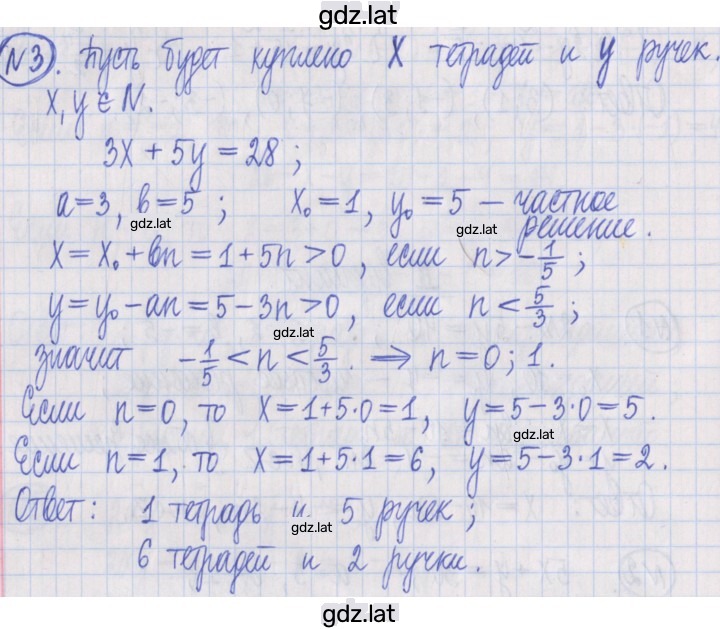 gdz.lat
N3. Пусть будет куплено x тетрадей и y ручек.
x, y ∈ N.
3x + 5y = 28 ;
a = 3, b = 5 ; x₀ = 1, y₀ = 5 – частное
gdz.lat
решение.
x = x₀ + bn = 1 + 5n > 0, если n > -1/5 ;
y = y₀ – an = 5 – 3n > 0, если n < 5/3 ;
gdz.lat
значит -1/5 < n < 5/3. ⇒ n = 0; 1.
Если n = 0, то x = 1 + 5·0 = 1, y = 5 – 3·0 = 5.
gdz.lat
Если n = 1, то x = 1 + 5·1 = 6, y = 5 – 3·1 = 2.
Ответ: 1 тетрадь и 5 ручек ;
gdz.lat
6 тетрадей и 2 ручки.
gdz.lat